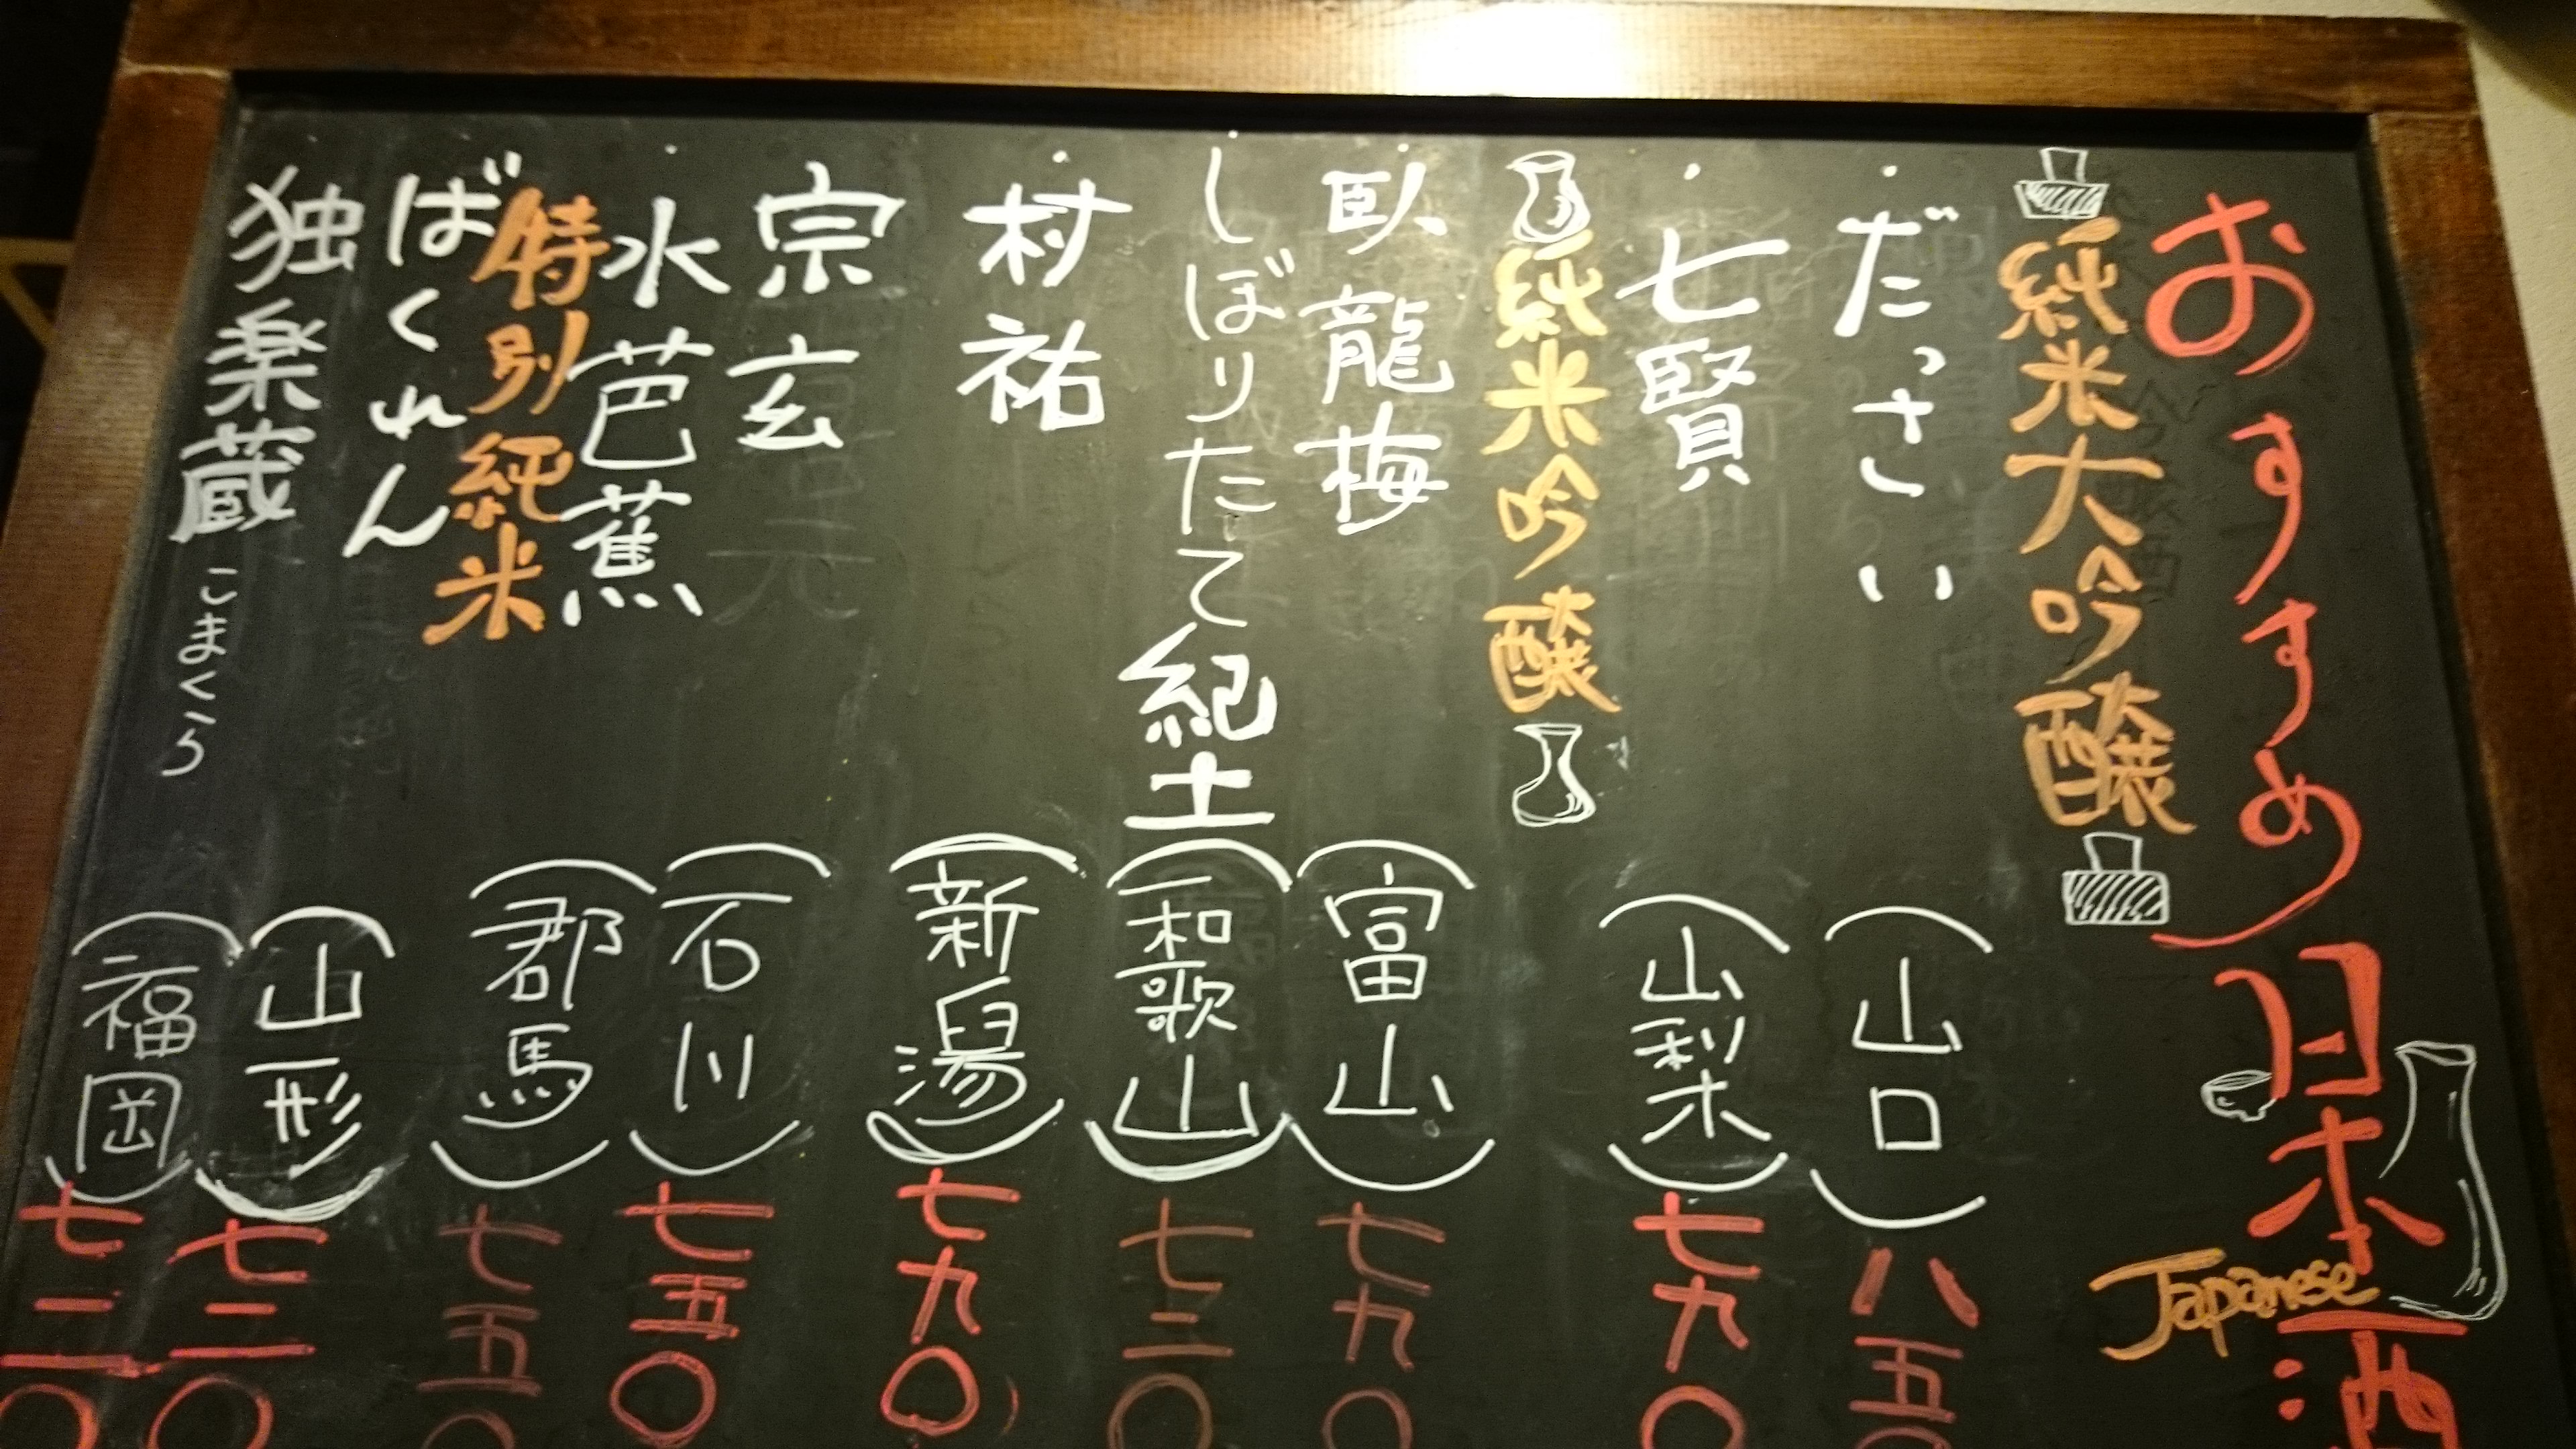 おすすめ日本酒
Japanese
純米大吟醸
だっさい (山口) 八五〇
七賢 (山梨) 七九〇
純米吟醸
臥龍梅 (富山) 七九〇
しぼりたて紀土 (和歌山) 七二〇
村祐 (新潟) 七九〇
宗玄 (石川) 七五〇
水芭蕉 (郡馬) 七五〇
特別純米
ばくれん (山形) 七二〇
独楽蔵 こまくら (福岡) 七二〇